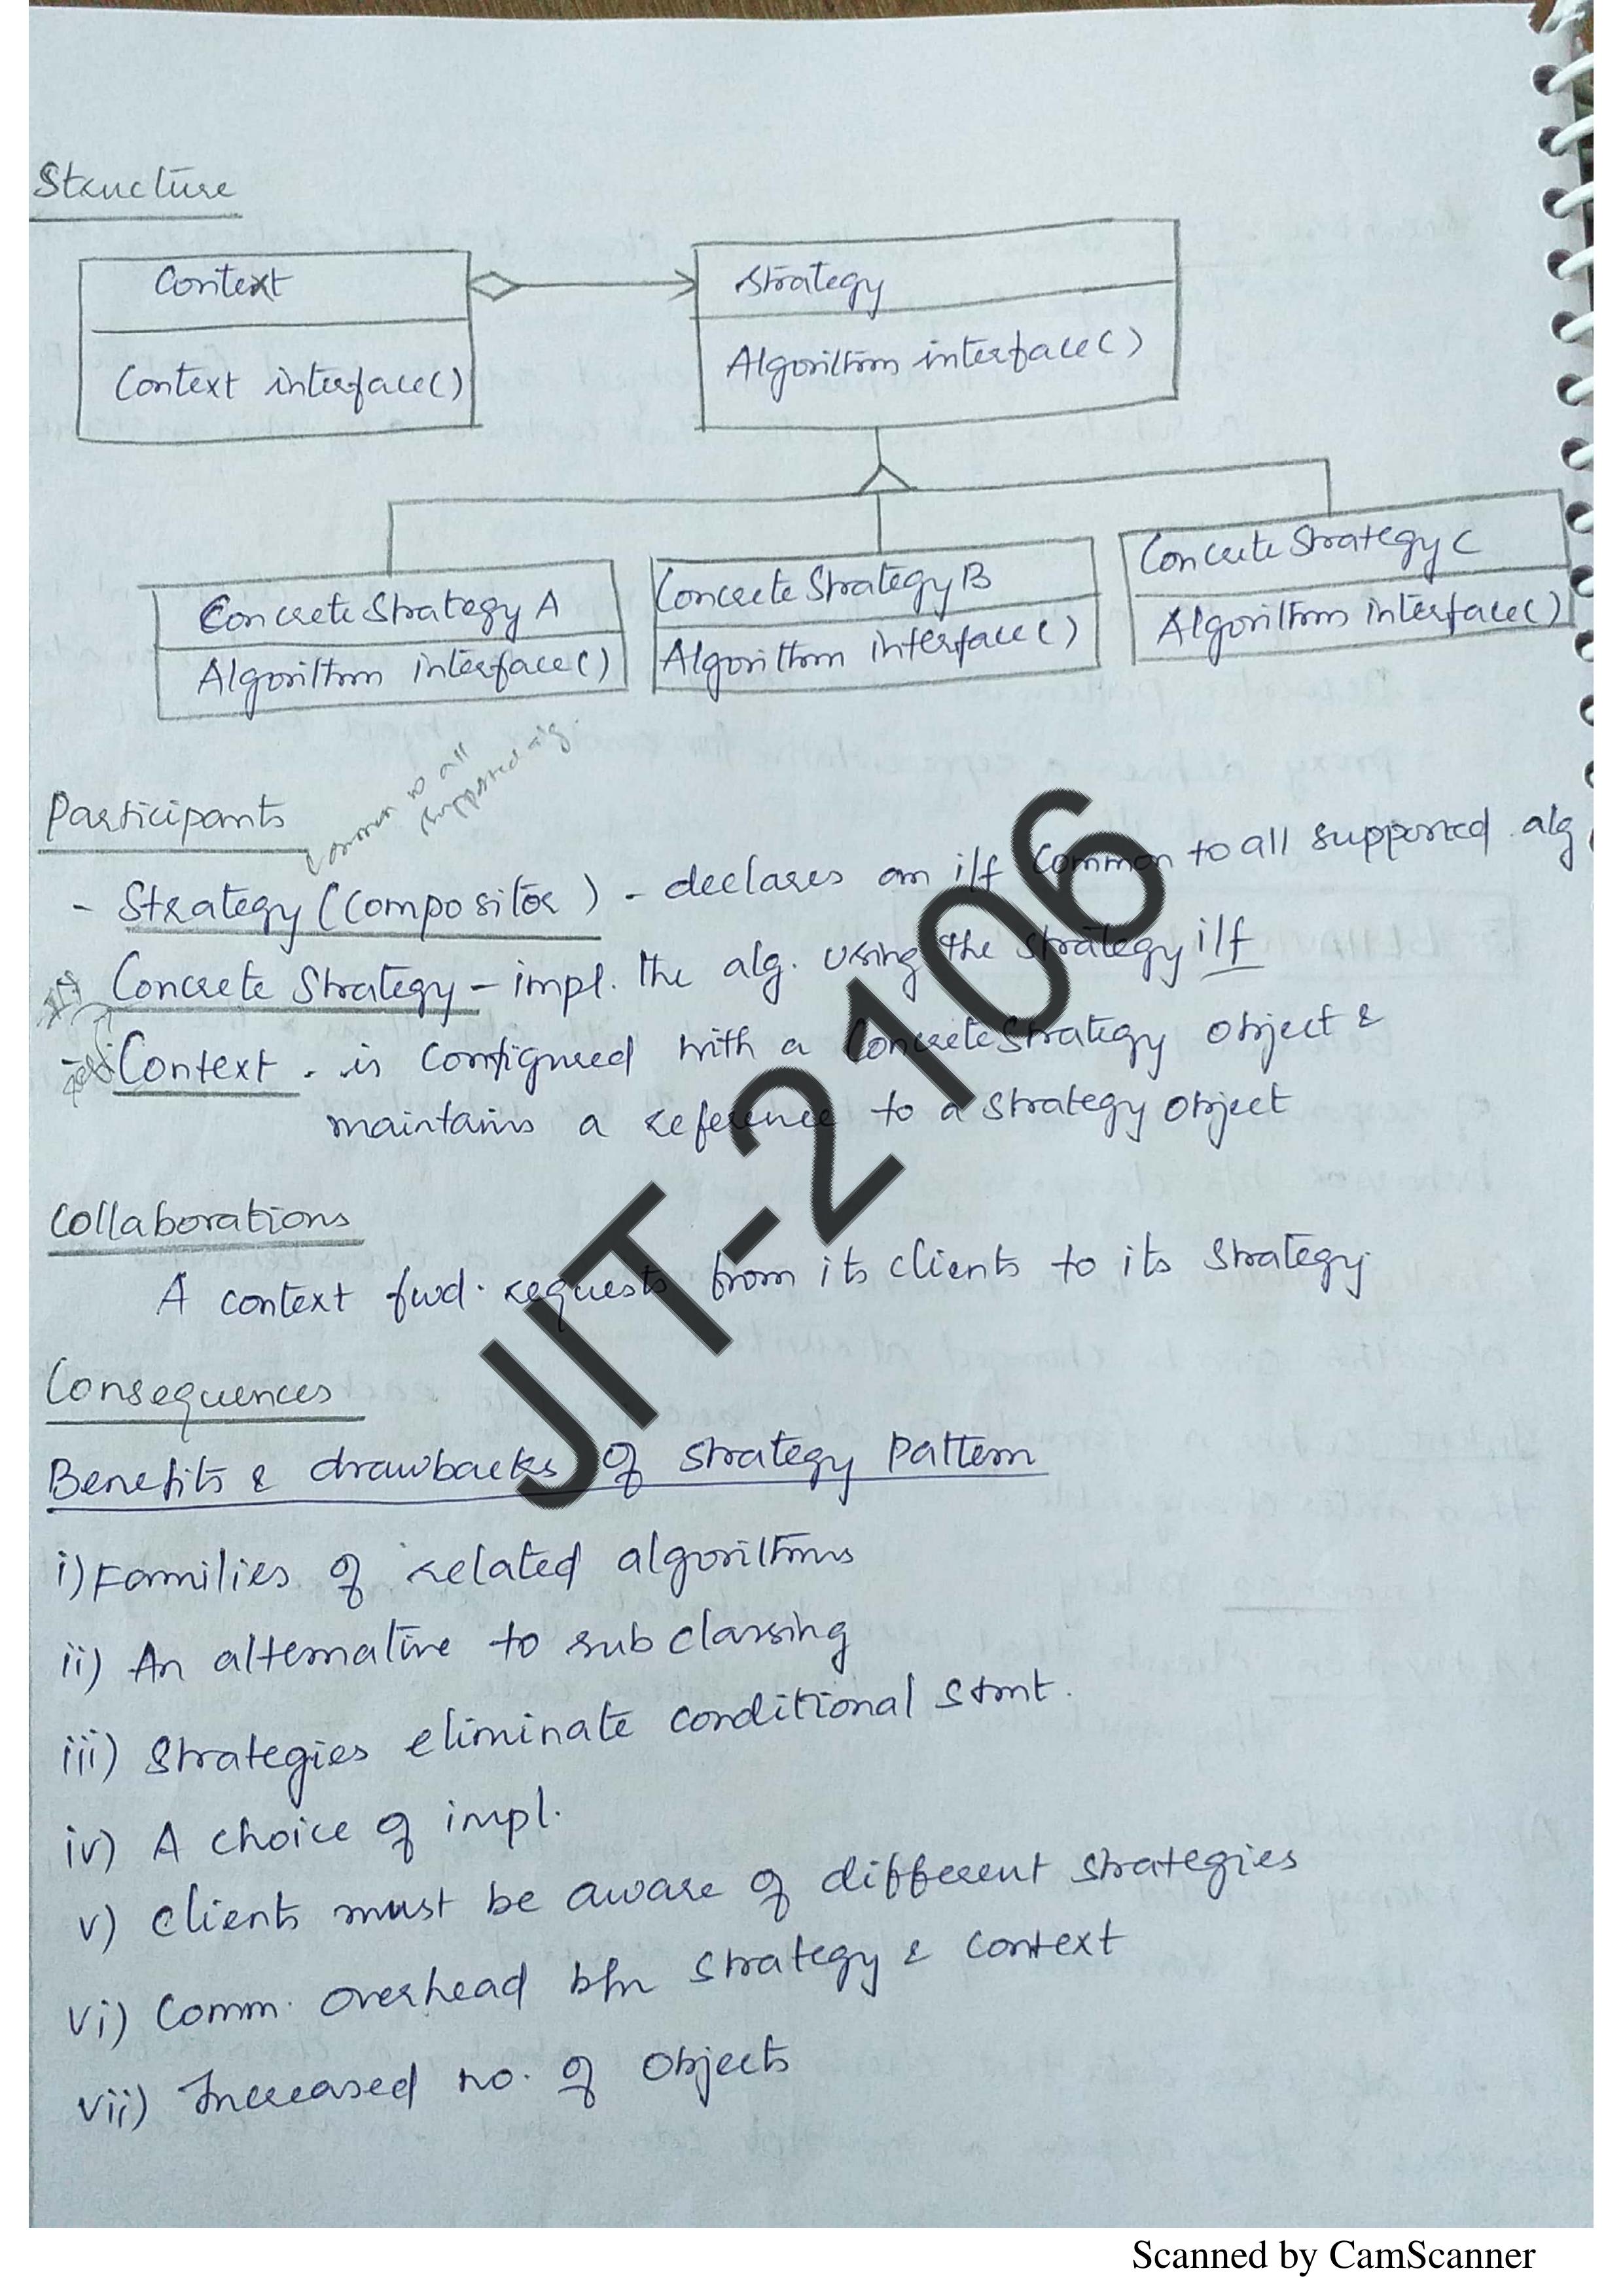 Structure
Context
Strategy
Context interface()
Algorithm interface()
Concrete Strategy A
Concrete Strategy B
Concrete Strategy C
Algorithm interface()
Algorithm interface()
Algorithm interface()
common to all
supported alg.
Participants
- Strategy (Compositor) - declares an i/f common to all supported alg
Concrete Strategy - impl. the alg. using the strategy i/f
- Context - is configured with a Concrete Strategy object &
maintains a reference to a strategy object
Collaborations
A context fwd. requests from its clients to its strategy
Consequences
Benefits & drawbacks of strategy pattern
i) Families of related algorithms
ii) An alternative to subclassing
iii) Strategies eliminate conditional stmt.
iv) A choice of impl.
v) clients must be aware of different strategies
vi) Comm. overhead b/n strategy & context
vii) Increased no. of objects
JIT-2106
Scanned by CamScanner